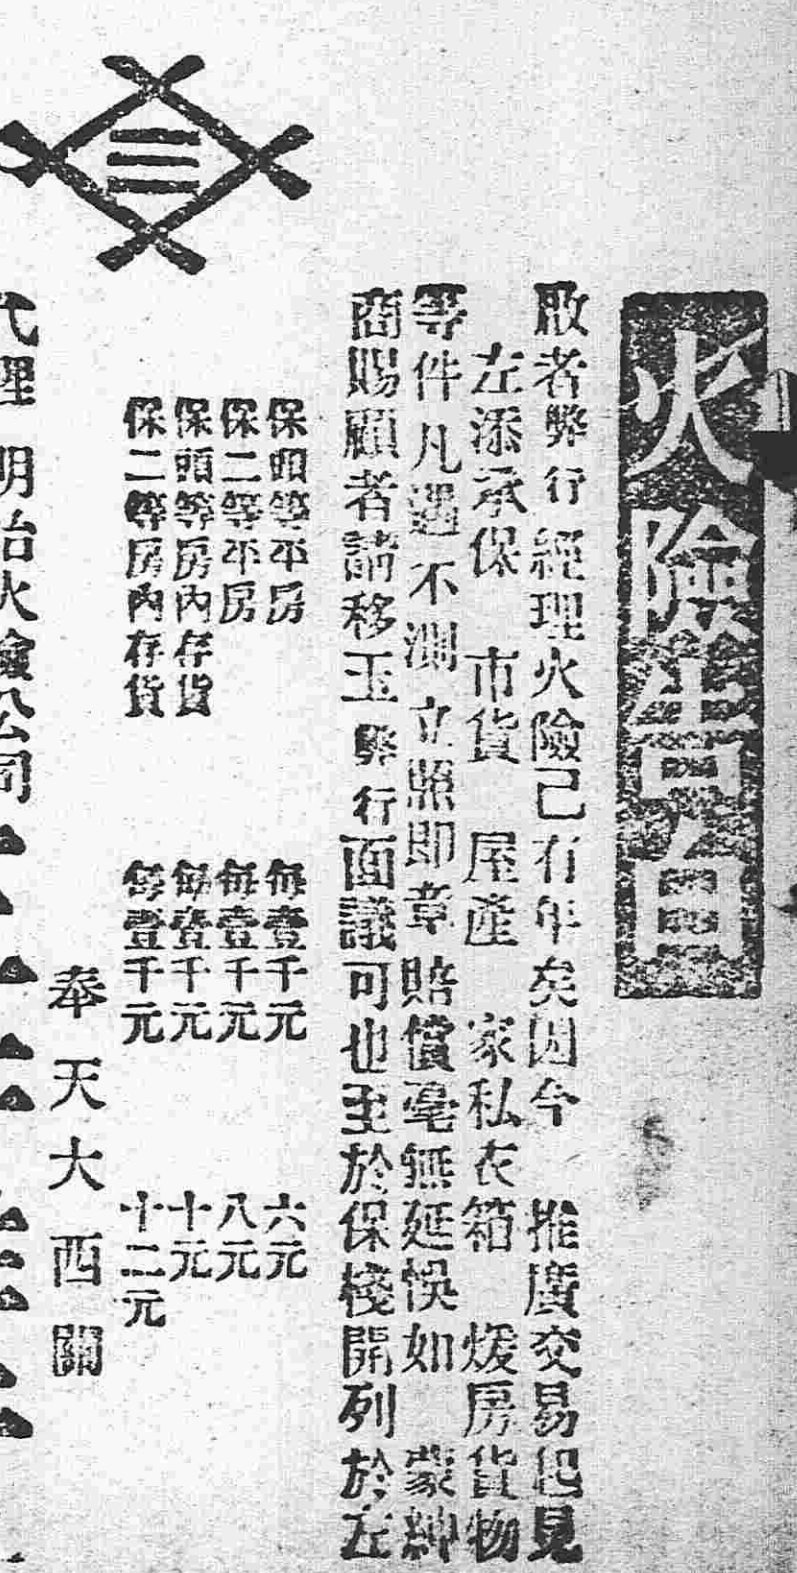 火險告白
敗者弊行經理火險已有年矣因今 推廣交易起見
左添承保 市貨 屋產 家私衣箱 煖房貨物
等件凡遇不測立照即章賠償毫無延悞如 蒙紳
商賜顧者請移玉弊行面議可也至於保棧開列於左
保頭等平房 每壹千元 六元
保二等平房 每壹千元 八元
保頭等房內存貨 每壹千元 十元
保二等房內存貨 每壹千元 十二元
奉天大西關
代理 明治火險公司